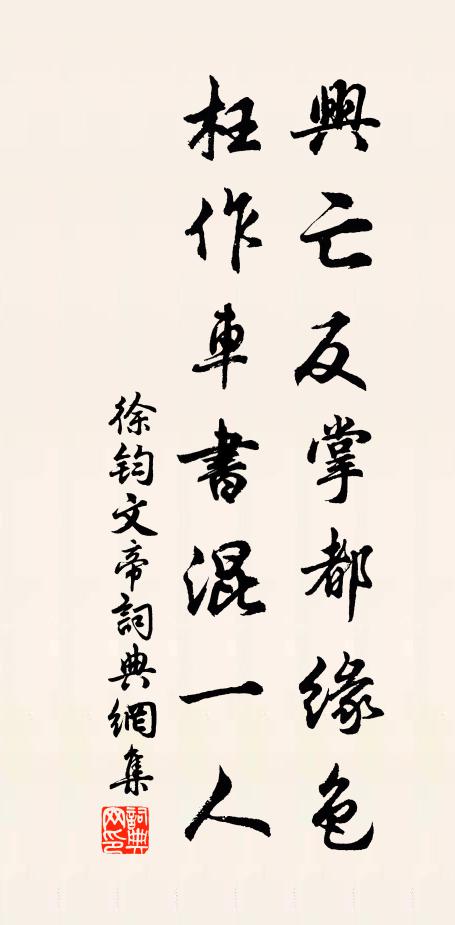 興亡反掌都緣色
枉作車書混一人
徐鈞文帝詞典網集
詞典網印